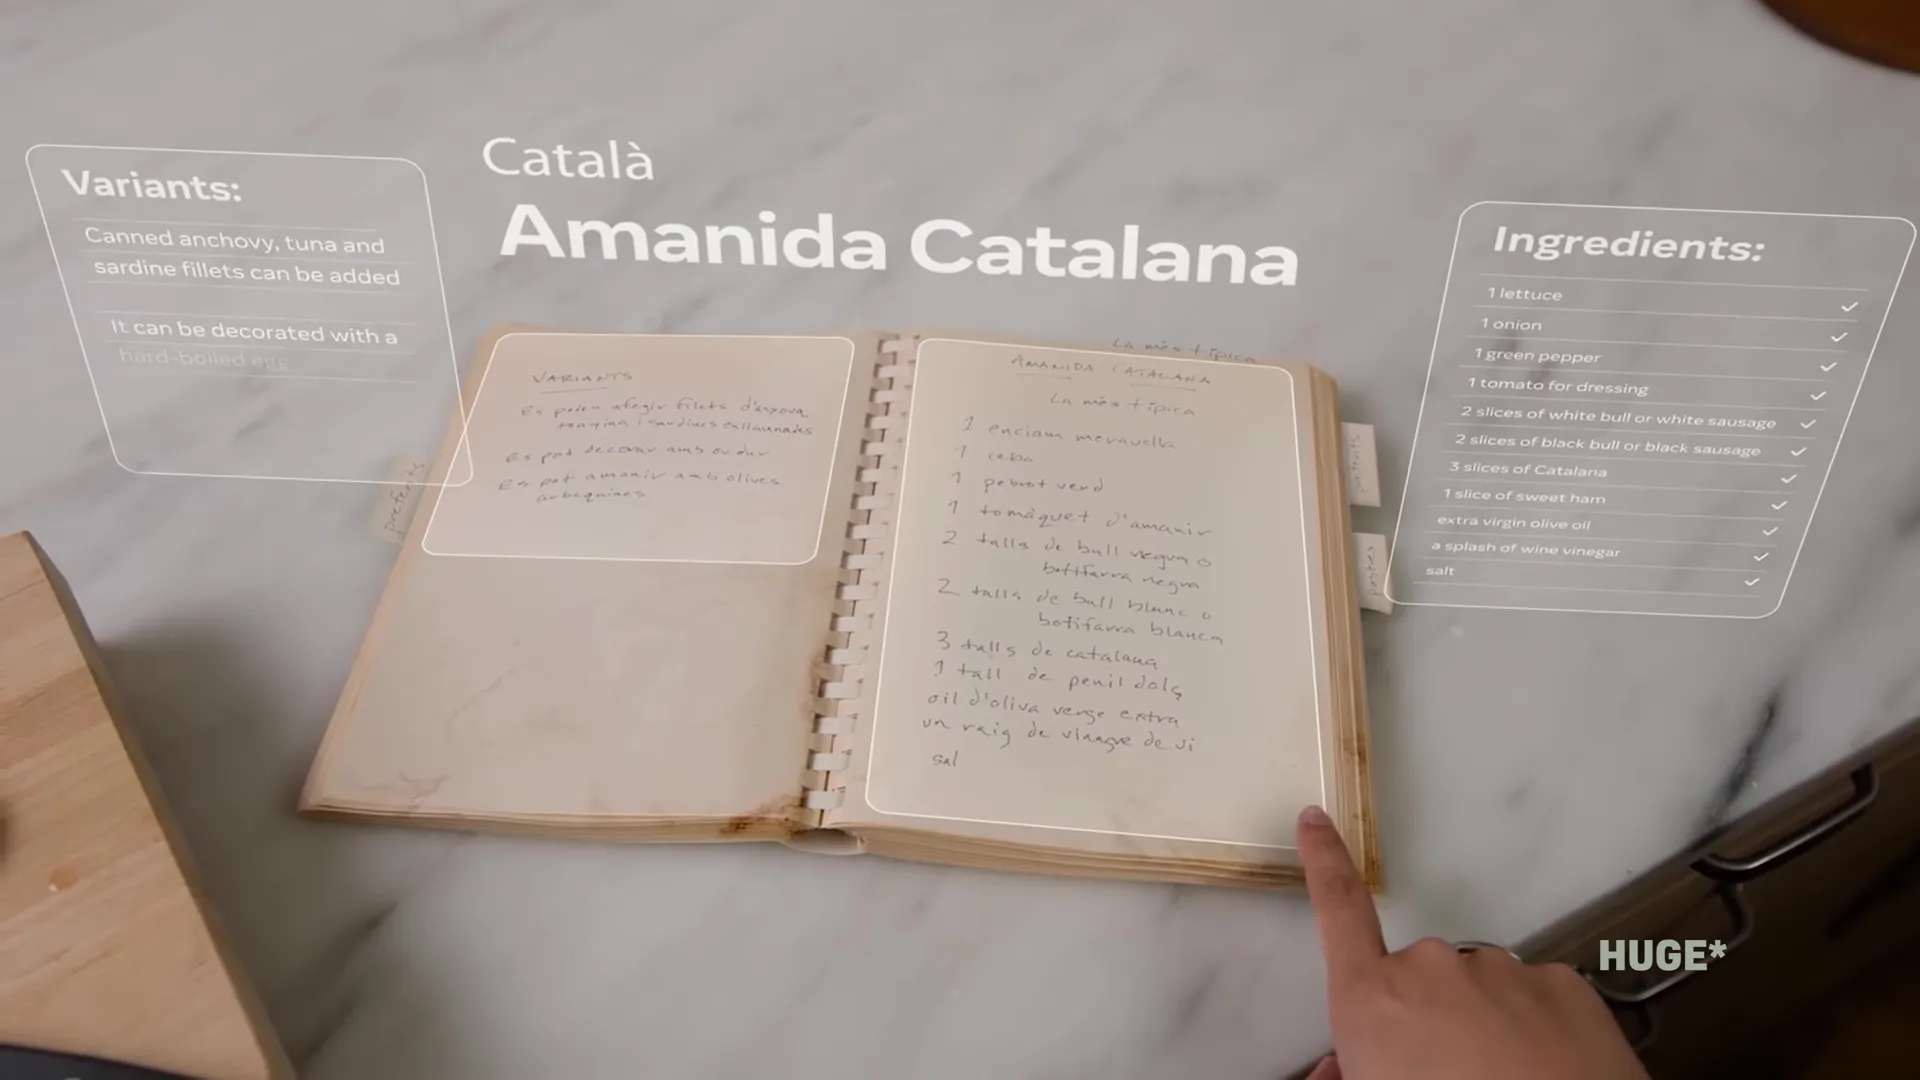 Català
Amanida Catalana
Variants:
Canned anchovy, tuna and
sardine fillets can be added
It can be decorated with a
hard-boiled egg
VARIANTS
Es poden afegir filets d'anxova
tonyina i sardines enllaunades
Es pot decorar amb ou dur
Es pot amanir amb olives
arbequines
preferits
La més típica
AMANIDA CATALANA
La més típica
1 enciam meravella
1 ceba
1 pebrot verd
1 tomàquet d'amanir
2 talls de bull negre o
botifarra negra
2 talls de bull blanc o
botifarra blanca
3 talls de catalana
1 tall de pernil dolç
oli d'oliva verge extra
un raig de vinagre de vi
sal
postres
Ingredients:
1 lettuce
1 onion
1 green pepper
1 tomato for dressing
2 slices of white bull or white sausage
2 slices of black bull or black sausage
3 slices of Catalana
1 slice of sweet ham
extra virgin olive oil
a splash of wine vinegar
salt
HUGE*